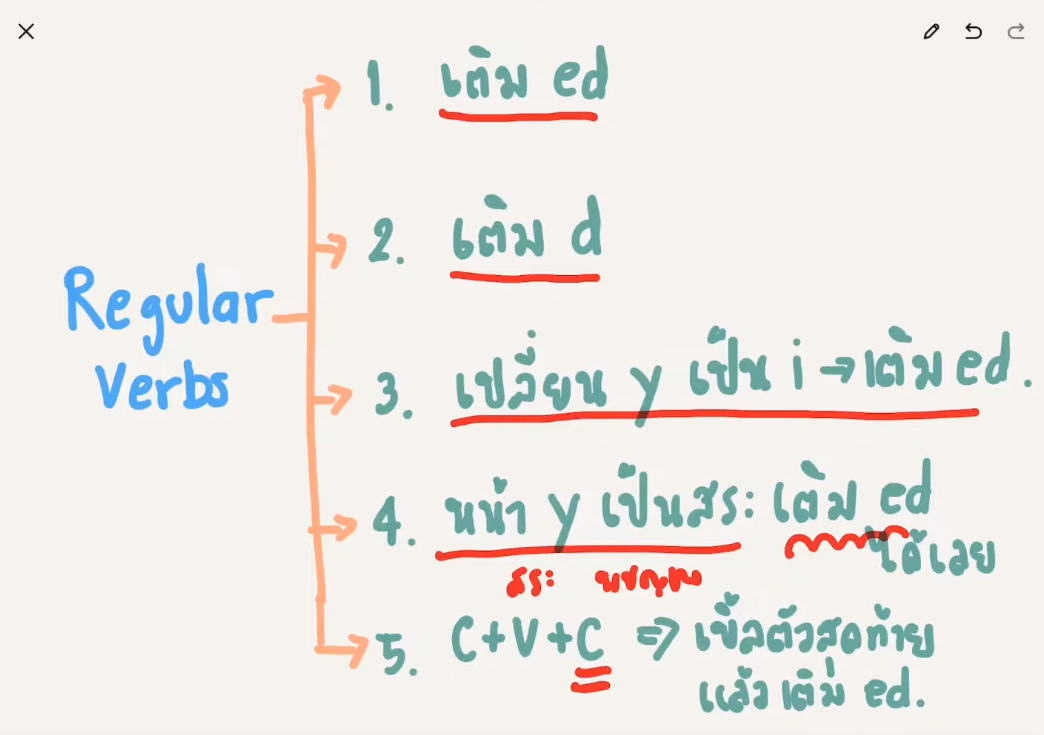 Regular
Verbs
1. เติม ed
2. เติม d
3. เปลี่ยน y เป็น i → เติม ed.
4. หน้า y เป็นสระ เติม ed
ได้เลย
สระ พยัญชนะ
5. C+V+C ⇒ เบิ้ลตัวสุดท้าย
แล้วเติม ed.